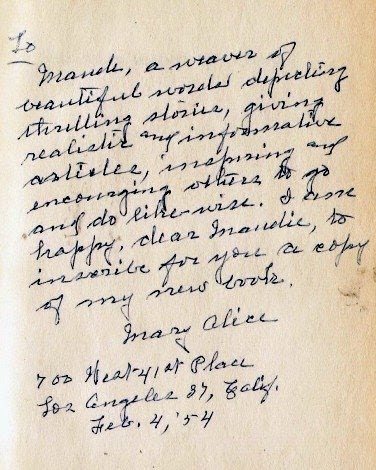 To
Maude, a weaver of
beautiful words depicting
thrilling stories, giving
realistic and informative
articles, inspiring and
encouraging others to go
and do like-wise. I am
happy, dear Maudie, to
inscribe for you a copy
of my new book.
Mary Alice
700 West 41st Place
Los Angeles 37, Calif.
Feb. 4, '54